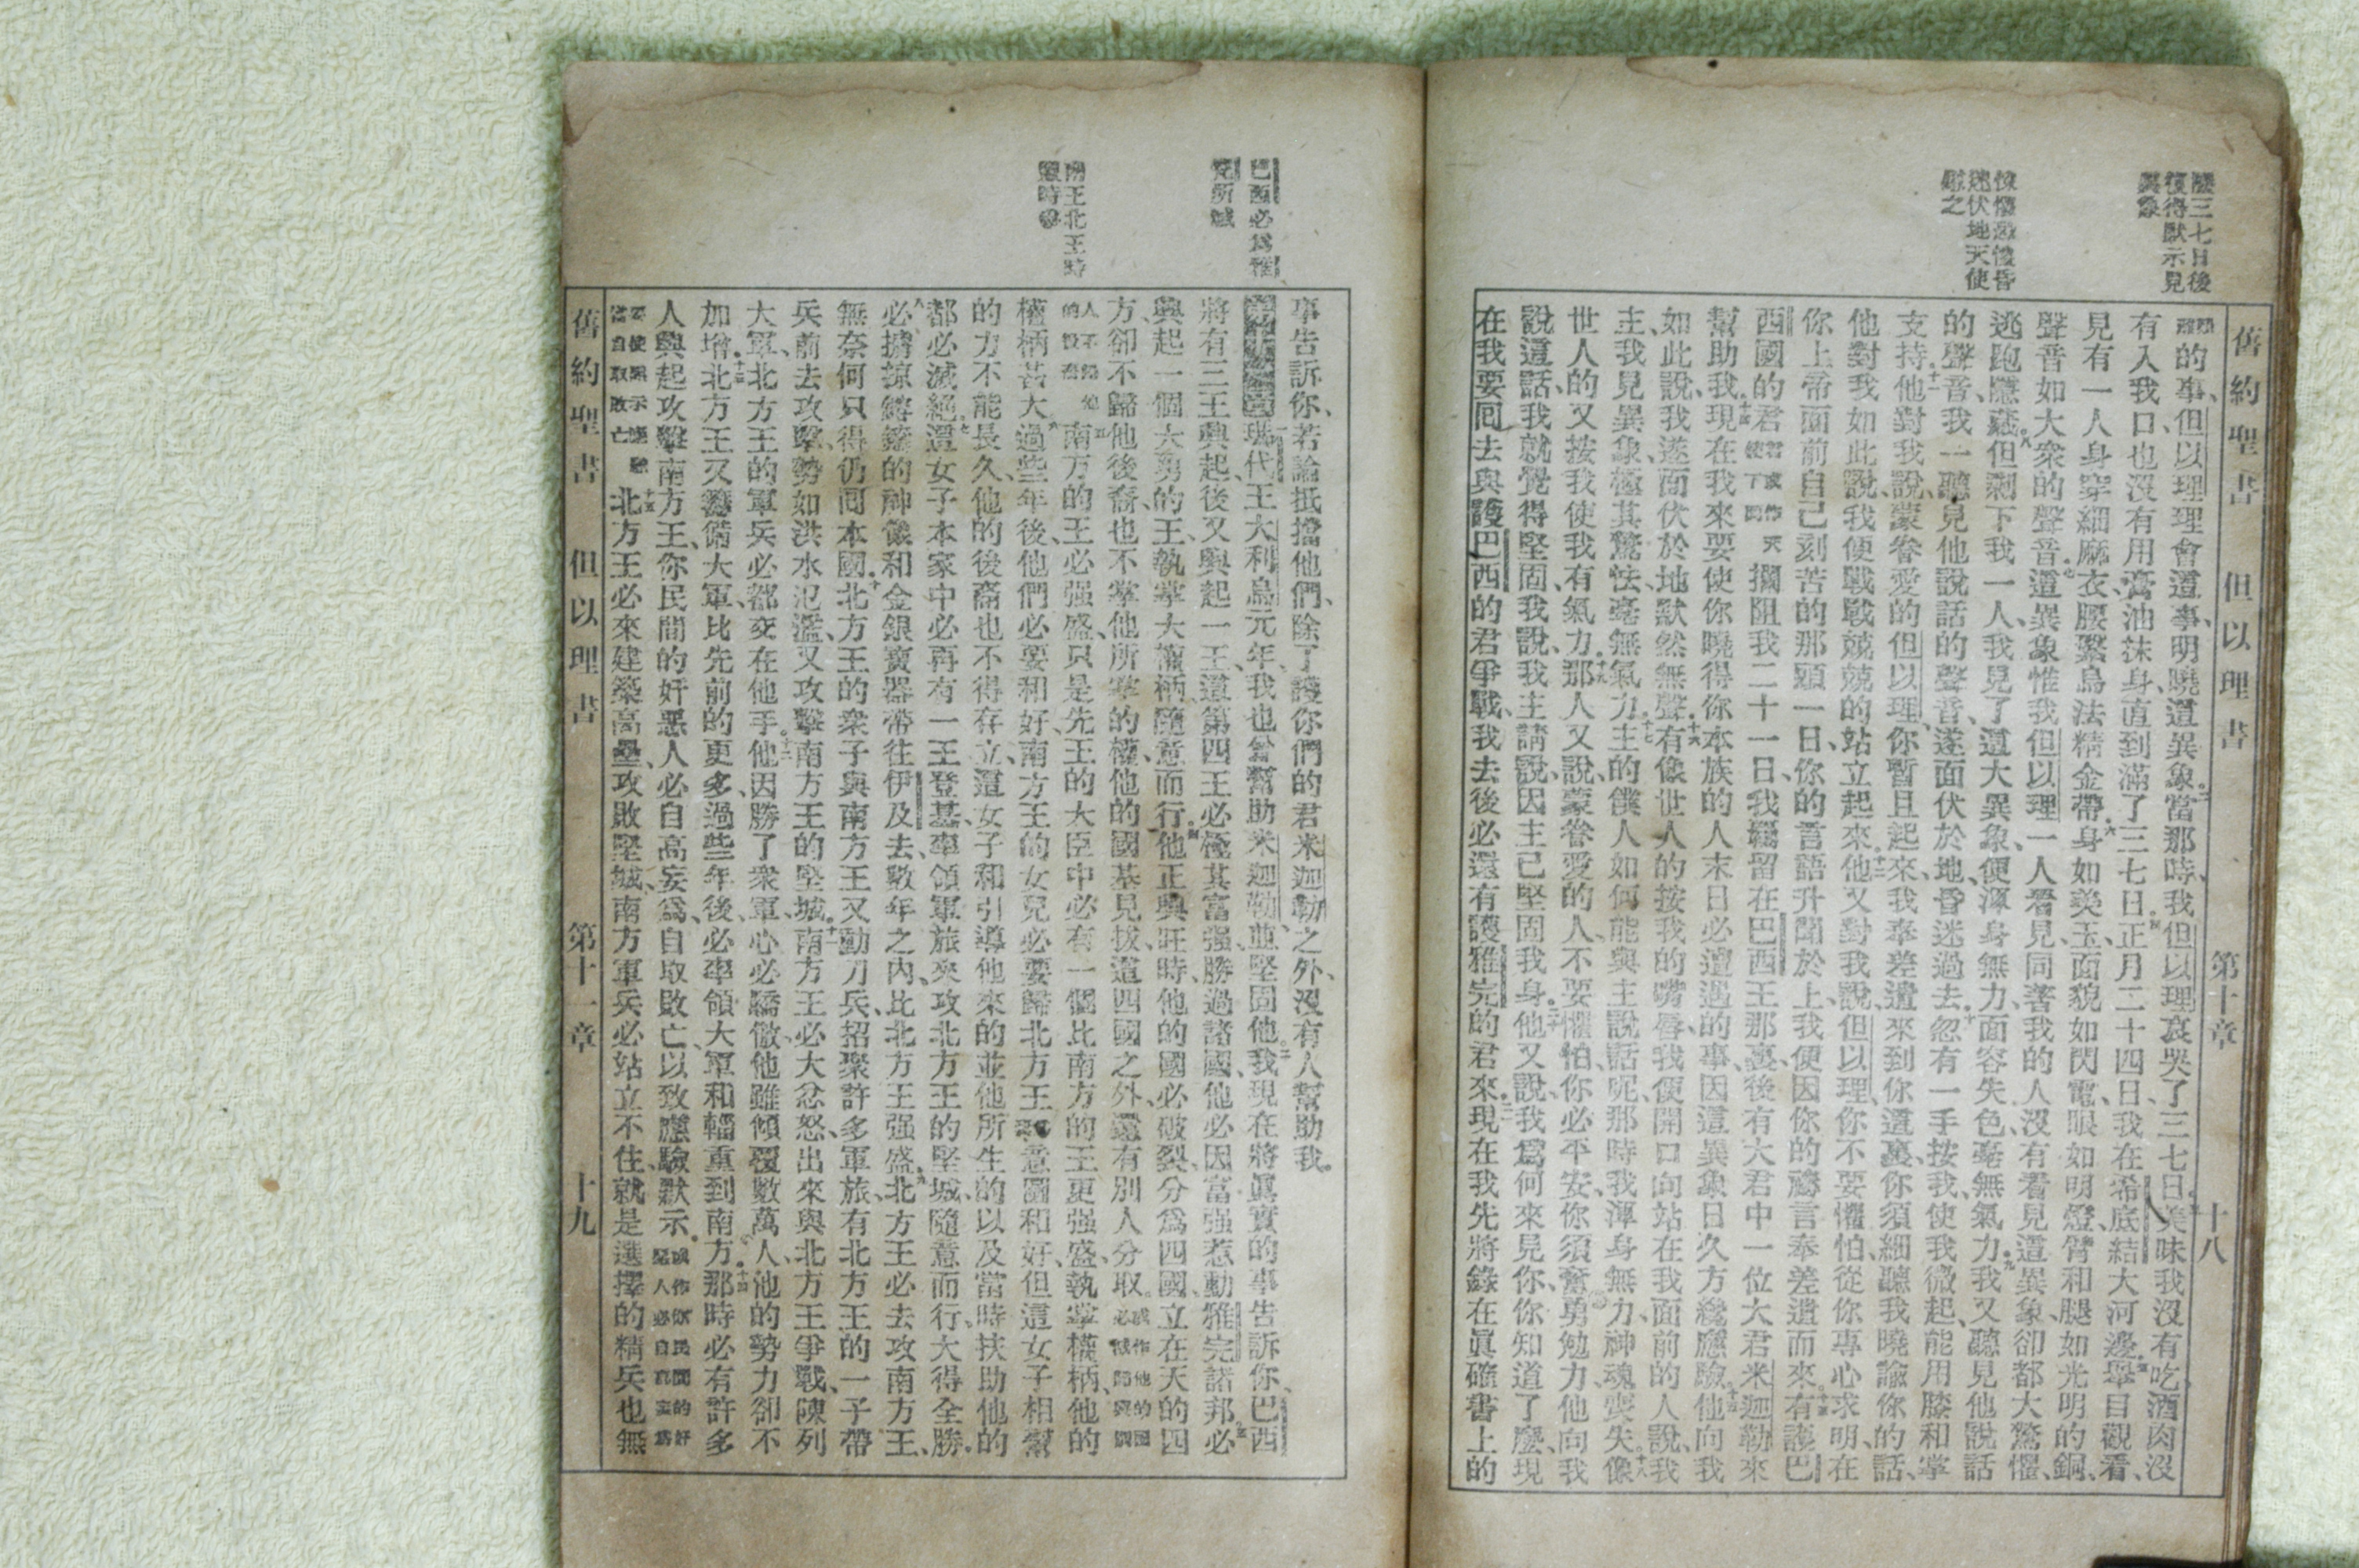 舊約聖書　但以理書　第十章　十八
歷三七日後
復得默示見
異象
悚懼昏
迷伏地天使
慰之
的事、但以理理會這事、明曉這異象。二當那時、我但以理哀哭了三七日。三美味我沒有吃、酒肉沒
有入我口、也沒有用膏油抹身、直到滿了三七日。四正月二十四日、我在希底結大河邊。五舉目觀看、
見有一人身穿細麻衣、腰繫烏法精金帶。六身如美玉、面貌如閃電、眼如明燈、臂和腿如光明的銅、
聲音如大衆的聲音。七這異象惟我但以理一人看見、同著我的人沒有看見這異象、卻都大驚懼、
逃跑隱藏。八但剩下我一人、我見了這大異象、便渾身無力、面容失色、毫無氣力。九我又聽見他說話
的聲音、我一聽見他說話的聲音、遂面伏於地、昏迷過去。十忽有一手按我、使我微起、能用膝和掌
支持。十一他對我說、蒙眷愛的但以理、你暫且起來、我奉差遣來到你這裏、你須細聽我曉諭你的話、
他對我如此說、我便戰戰兢兢的站立起來。十二他又對我說、但以理、你不要懼怕、從你專心求明、在
你上帝面前自己刻苦的那頭一日、你的言語升聞於上、我便因你的禱言奉差遣而來。十三有護巴
西國的君攔阻我二十一日、我羈留在巴西王那裏、後有大君中一位大君米迦勒來
幫助我。十四現在我來要使你曉得你本族的人末日必遭遇的事、因這異象日久方纔應驗。十五他向我
如此說、我遂面伏於地默然無聲。十六有像世人的按我的嘴唇、我便開口向站在我面前的人說、我
主、我見異象、極其驚怯、毫無氣力。十七主的僕人如何能與主說話呢、那時我渾身無力、神魂喪失。十八像
世人的又按我使我有氣力。十九那人又說、蒙眷愛的人、不要懼怕、你必平安、你須奮勇勉力、他向我
說這話、我就覺得堅固、我說、我主請說、因主已堅固我身。二十他又說、我爲何來見你、你知道了麽、現
在我要囘去與護巴西的君爭戰、我去後必還有護雅完的君來。二一現在我先將錄在眞確書上的
巴西必爲雅
完所滅
南王北王時
懇時爭
事告訴你、若論抵擋他們、除了護你們的君米迦勒之外、沒有人幫助我。
瑪代王大利烏元年、我也曾幫助米迦勒、並堅固他。二我現在將眞實的事告訴你、巴西
將有三王興起、後又興起一王、這第四王必極其富强、勝過諸國、他必因富强惹動雅完諸邦。三必
興起一個大勇的王、執掌大權柄、隨意而行。四他正興旺時、他的國必破裂、分爲四國、立在天的四
方、卻不歸他後裔、也不掌他所掌的權、他的國基見拔、這四國之外、還有別人分取。
五南方的王必强盛、只是先王的大臣中必有一個比南方的王更强盛、執掌權柄、他的
權柄甚大。六過些年後、他們必要和好、南方王的女兒必要歸北方王、意圖和好、但這女子相幫
的力不能長久、他的後裔也不得存立、這女子和引導他來的、並他所生的、以及當時扶助他的
都必滅絕。七這女子本家中必再有一王登基、率領軍旅來攻北方王的堅城、隨意而行、大得全勝。
八必擄掠鑄鑵的神像和金銀寶器帶往伊及去、數年之內、比北方王强盛。九北方王必去攻南方王、
無奈何只得仍囘本國。十北方王的衆子與南方王又動刀兵、招聚許多軍旅、有北方王的一子帶
兵前去攻擊、勢如洪水氾濫、又攻擊南方王的堅城。十一南方王必大忿怒、出來與北方王爭戰、陳列
大軍、北方王的軍兵必都交在他手。十二他因勝了衆軍、心必驕傲、他雖傾覆數萬人、他的勢力卻不
加增。十三北方王又籌備大軍、比先前的更多、過些年後、必率領大軍和輜重到南方。十四那時必有許多
人興起攻擊南方王、你民間的奸惡人必自高妄爲、自取敗亡、以致應驗默示。或作你民間的奸惡人必自高妄爲
十五北方王必來建築高壘、攻敗堅城、南方軍兵必站立不住、就是選擇的精兵也無
舊約聖書　但以理書　第十一章　十九